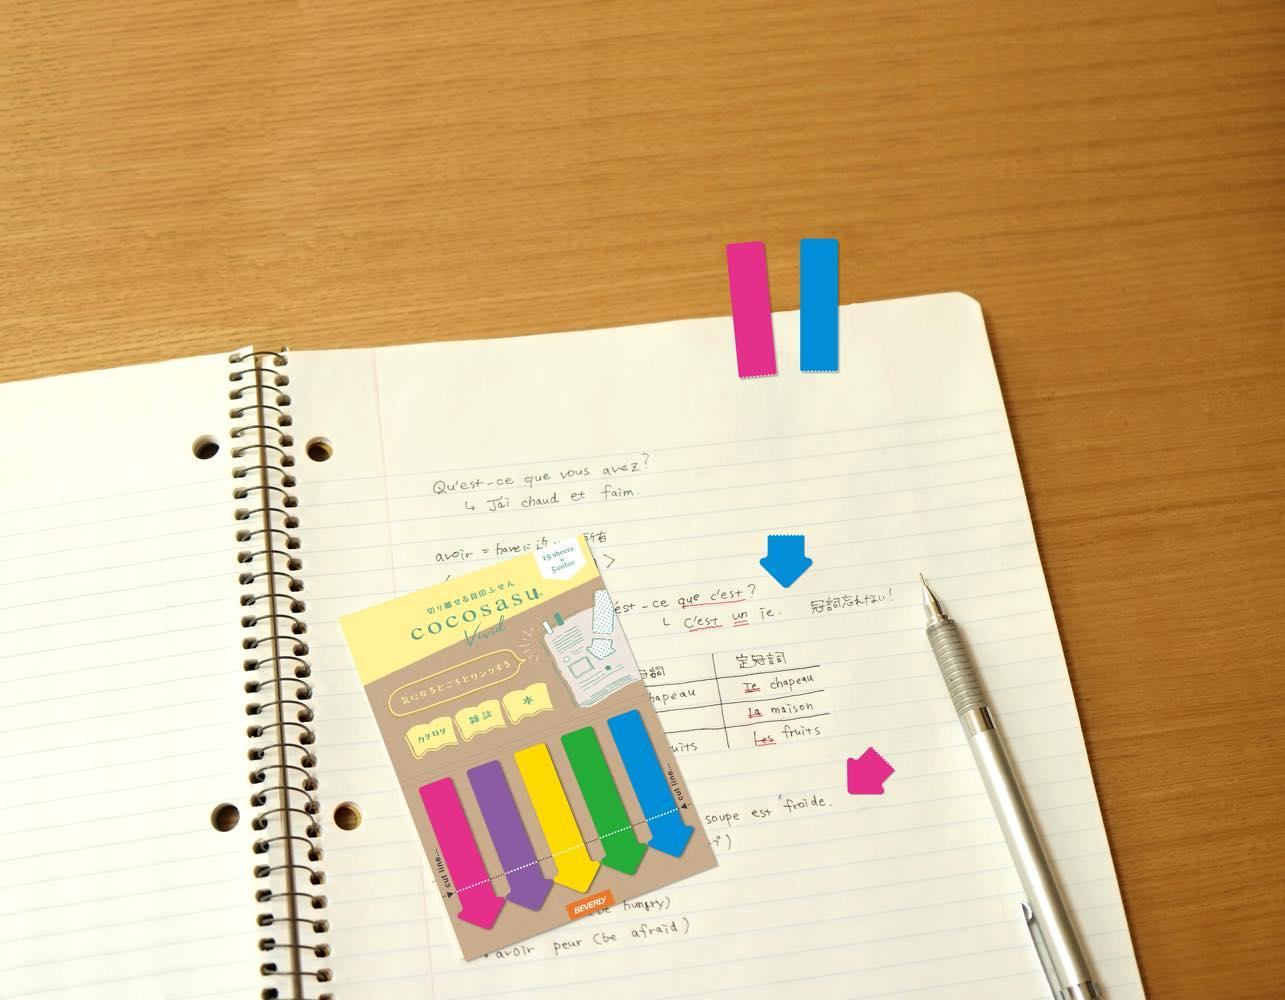 Qu'est-ce que vous avez?
↳ J'ai chaud et faim.
avoir = haveに
15 sheets
×
5 color
切り離せる目印ふせん
cocosasu
Vivid
気になるところとリンクする
カタログ
雑誌
本
cut line...
cut line...
BEVERLY
est-ce que c'est?
↳ C'est un Te.
冠詞忘れない!
冠詞
定冠詞
chapeau
Te chapeau
La maison
uits
Les fruits
soupe est froide.
(be hungry)
・avoir peur (be afraid)